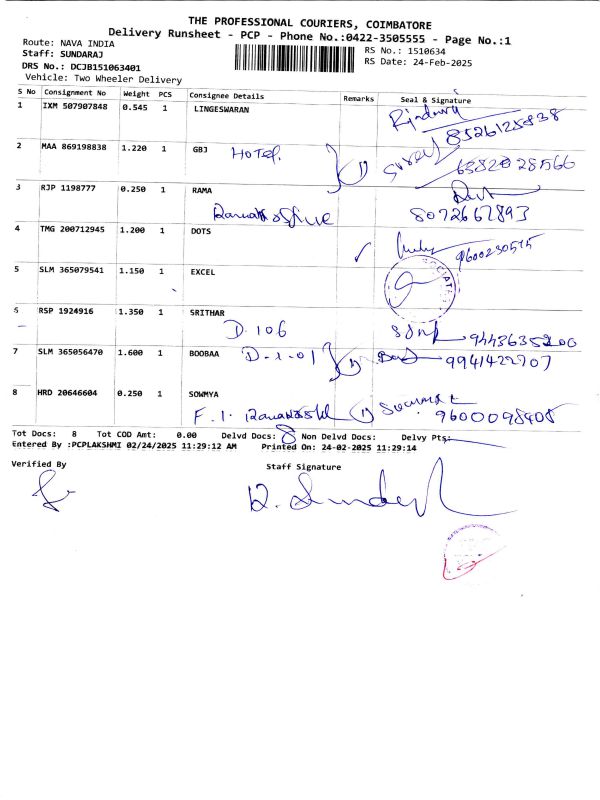 THE PROFESSIONAL COURIERS, COIMBATORE
Delivery Runsheet - PCP - Phone No.:0422-3505555 - Page No.:1
Route: NAVA INDIA
RS No.: 1510634
Staff: SUNDARAJ
RS Date: 24-Feb-2025
DRS No.: DCJB151063401
Vehicle: Two Wheeler Delivery
S No Consignment No Weight PCS Consignee Details Remarks Seal & Signature
1 IXM 507907848 0.545 1 LINGESWARAN
8526125838
2 MAA 869198838 1.220 1 GBJ HOTEL
6382028566
3 RJP 1198777 0.250 1 RAMA
8072667893
4 TMG 200712945 1.200 1 DOTS
9600230515
5 SLM 365079541 1.150 1 EXCEL
6 RSP 1924916 1.350 1 SRITHAR
D.106 9443635200
7 SLM 365056470 1.600 1 BOOBAA D-1-01
9941422707
8 HRD 20646604 0.250 1 SOWMYA
F.1. 9600098408
Tot Docs: 8 Tot COD Amt: 0.00 Delvd Docs: 8 Non Delvd Docs: Delvy Pts:
Entered By :PCPLAKSHMI 02/24/2025 11:29:12 AM Printed On: 24-02-2025 11:29:14
Verified By Staff Signature